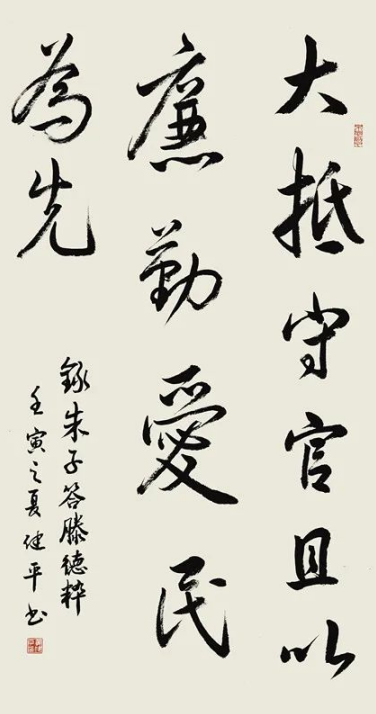 大抵守官且以
廉勤愛民
為先
錄朱子答滕德粹
壬寅之夏健平书